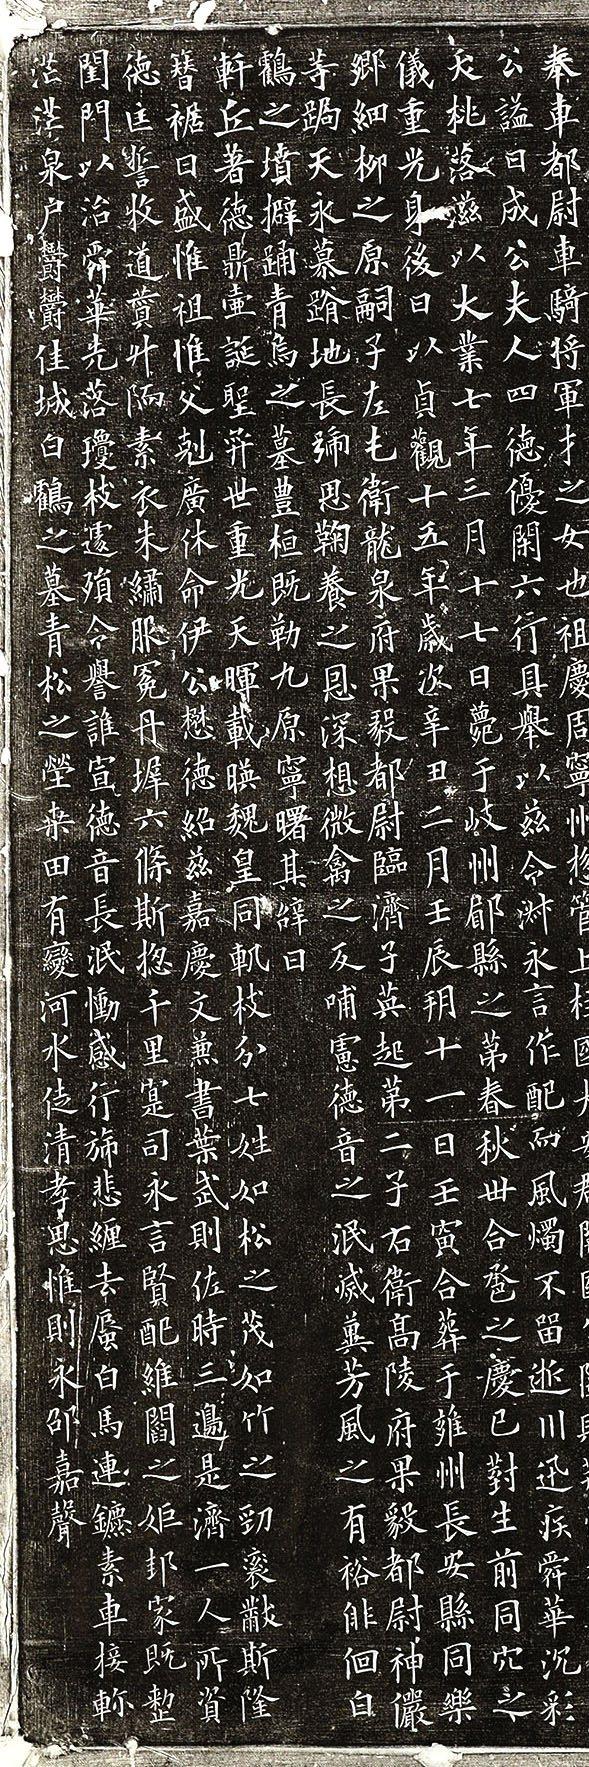 奉車都尉車騎將軍才之女也祖慶周寧州揔管上柱國
公謚曰成公夫人四德優閑六行具舉以茲令淋永言作配而風燭不留逝川迅疾舜華沉彩
夭桃落滋以大業七年三月十七日薨于岐州郿縣之第春秋卌合巹之慶已對生前同穴之
儀重光身後曰以貞觀十五年歲次辛丑二月壬辰玥十一日壬寅合葬于雍州長安縣同樂
鄉細柳之原嗣子左屯衛龍泉府果毅都尉臨濟子英起第二子右衛高陵府果毅都尉神儼
等跼天永慕蹐地長號思鞠養之恩深想微禽之反哺慮德音之泯滅冀芳風之有裕俳佪白
鶴之墳擗踊青烏之墓豊桓既勒九原寧曙其辭曰
軒丘著德鼎壷誕聖弈世重光天暉載暎魏皇同軌枝分七姓如松之茂如竹之勁袞黻斯隆
簪裾日盛惟祖惟父剋廣休命伊公懋德紹茲嘉慶文兼書葉武則佐時三邊是濟一人所資
德匡誓牧道賛升陑素衣朱繡服冕丹墀六條斯揔千里寔司永言賢配維閻之姖邦家既整
閨門以治舜華先落瓊枝遽殞令譽誰宣德音長泯慟感行旆悲纏去蜃白馬連鑣素車接軫
茫茫泉户欝欝佳城白鶴之墓青松之塋桒田有變河水徒清孝思惟則永邵嘉聲